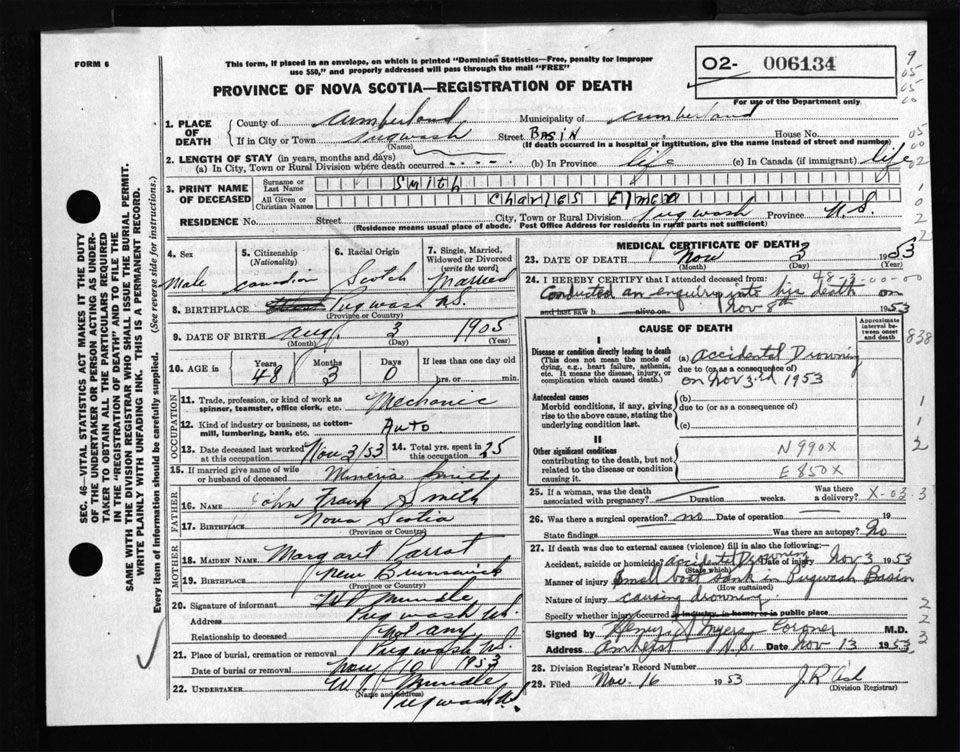 FORM 6
This form, if placed in an envelope, on which is printed "Dominion Statistics—Free, penalty for improper
use $50," and properly addressed will pass through the mail "FREE"
O2- 006134
For use of the Department only.
PROVINCE OF NOVA SCOTIA—REGISTRATION OF DEATH
1. PLACE OF DEATH
County of Cumberland Municipality of Cumberland
If in City or Town Pugwash Street BASIN House No.
(Name) (If death occurred in a hospital or institution, give the name instead of street and number)
2. LENGTH OF STAY (in years, months and days)
(a) In City, Town or Rural Division where death occurred (b) In Province life (c) In Canada (if immigrant) life
3. PRINT NAME OF DECEASED
Surname or Last Name Smith
All Given or Christian Names Charles Elmer
RESIDENCE No. Street City, Town or Rural Division Pugwash Province N.S.
(Residence means usual place of abode. Post Office Address for residents in rural parts not sufficient)
4. Sex Male
5. Citizenship (Nationality) Canadian
6. Racial Origin Scotch
7. Single, Married, Widowed or Divorced (write the word) Married
8. BIRTHPLACE Pugwash N.S.
(Province or Country)
9. DATE OF BIRTH Aug 3 1905
(Month) (Day) (Year)
10. AGE in Years 48 Months 3 Days 0 If less than one day old hrs. or min.
OCCUPATION
11. Trade, profession, or kind of work as spinner, teamster, office clerk, etc. Mechanic
12. Kind of industry or business, as cotton-mill, lumbering, bank, etc. Auto
13. Date deceased last worked at this occupation Nov 3/53 14. Total yrs. spent in this occupation 25
15. If married give name of wife or husband of deceased Smith
FATHER
16. NAME John Frank Smith
17. BIRTHPLACE Nova Scotia
(Province or Country)
MOTHER
18. MAIDEN NAME Margaret
19. BIRTHPLACE New Brunswick
(Province or Country)
20. Signature of informant Mundle
Address Pugwash N.S.
Relationship to deceased not any
21. Place of burial, cremation or removal Pugwash N.S.
Date of burial or removal Nov 10 1953
22. UNDERTAKER Mundle
(Name and address)
Pugwash
MEDICAL CERTIFICATE OF DEATH
23. DATE OF DEATH Nov 3 1953
(Month) (Day) (Year)
24. I HEREBY CERTIFY that I attended deceased from: 48-3-00-00
Conducted an enquiry into his death on
and last saw h alive on Nov 8th 1953
CAUSE OF DEATH
Approximate interval between onset and death
I
Disease or condition directly leading to death
(This does not mean the mode of dying, e.g., heart failure, asthenia, etc. It means the disease, injury, or complication which caused death.)
(a) Accidental Drowning
due to (or as a consequence of)
on Nov 3rd 1953
Antecedent causes
Morbid conditions, if any, giving rise to the above cause, stating the underlying condition last.
(b)
due to (or as a consequence of)
(c)
II
Other significant conditions
contributing to the death, but not related to the disease or condition causing it.
N 990X
E 850X
25. If a woman, was the death associated with pregnancy? Duration weeks. Was there a delivery? X-03-3
26. Was there a surgical operation? no Date of operation 19
State findings Was there an autopsy? No
27. If death was due to external causes (violence) fill in also the following:—
Accident, suicide or homicide? accidental Drowning Date Nov 3 1953
(State which)
Manner of injury Small boat sank in Pugwash Basin
(How sustained)
Nature of injury causing drowning
Specify whether injury occurred in industry, in home, or in public place
Signed by Coroner M.D.
Address Amherst N.S. Date Nov 13 1953
28. Division Registrar's Record Number
29. Filed Nov. 16 1953
(Division Registrar)
SEC. 46—VITAL STATISTICS ACT MAKES IT THE DUTY
OF THE UNDERTAKER OR PERSON ACTING AS UNDER-
TAKER TO OBTAIN ALL THE PARTICULARS REQUIRED
IN THE "REGISTRATION OF DEATH" AND TO FILE THE
SAME WITH THE DIVISION REGISTRAR WHO SHALL ISSUE THE BURIAL PERMIT.
WRITE PLAINLY WITH UNFADING INK. THIS IS A PERMANENT RECORD.
Every item of information should be carefully supplied. (See reverse side for instructions.)